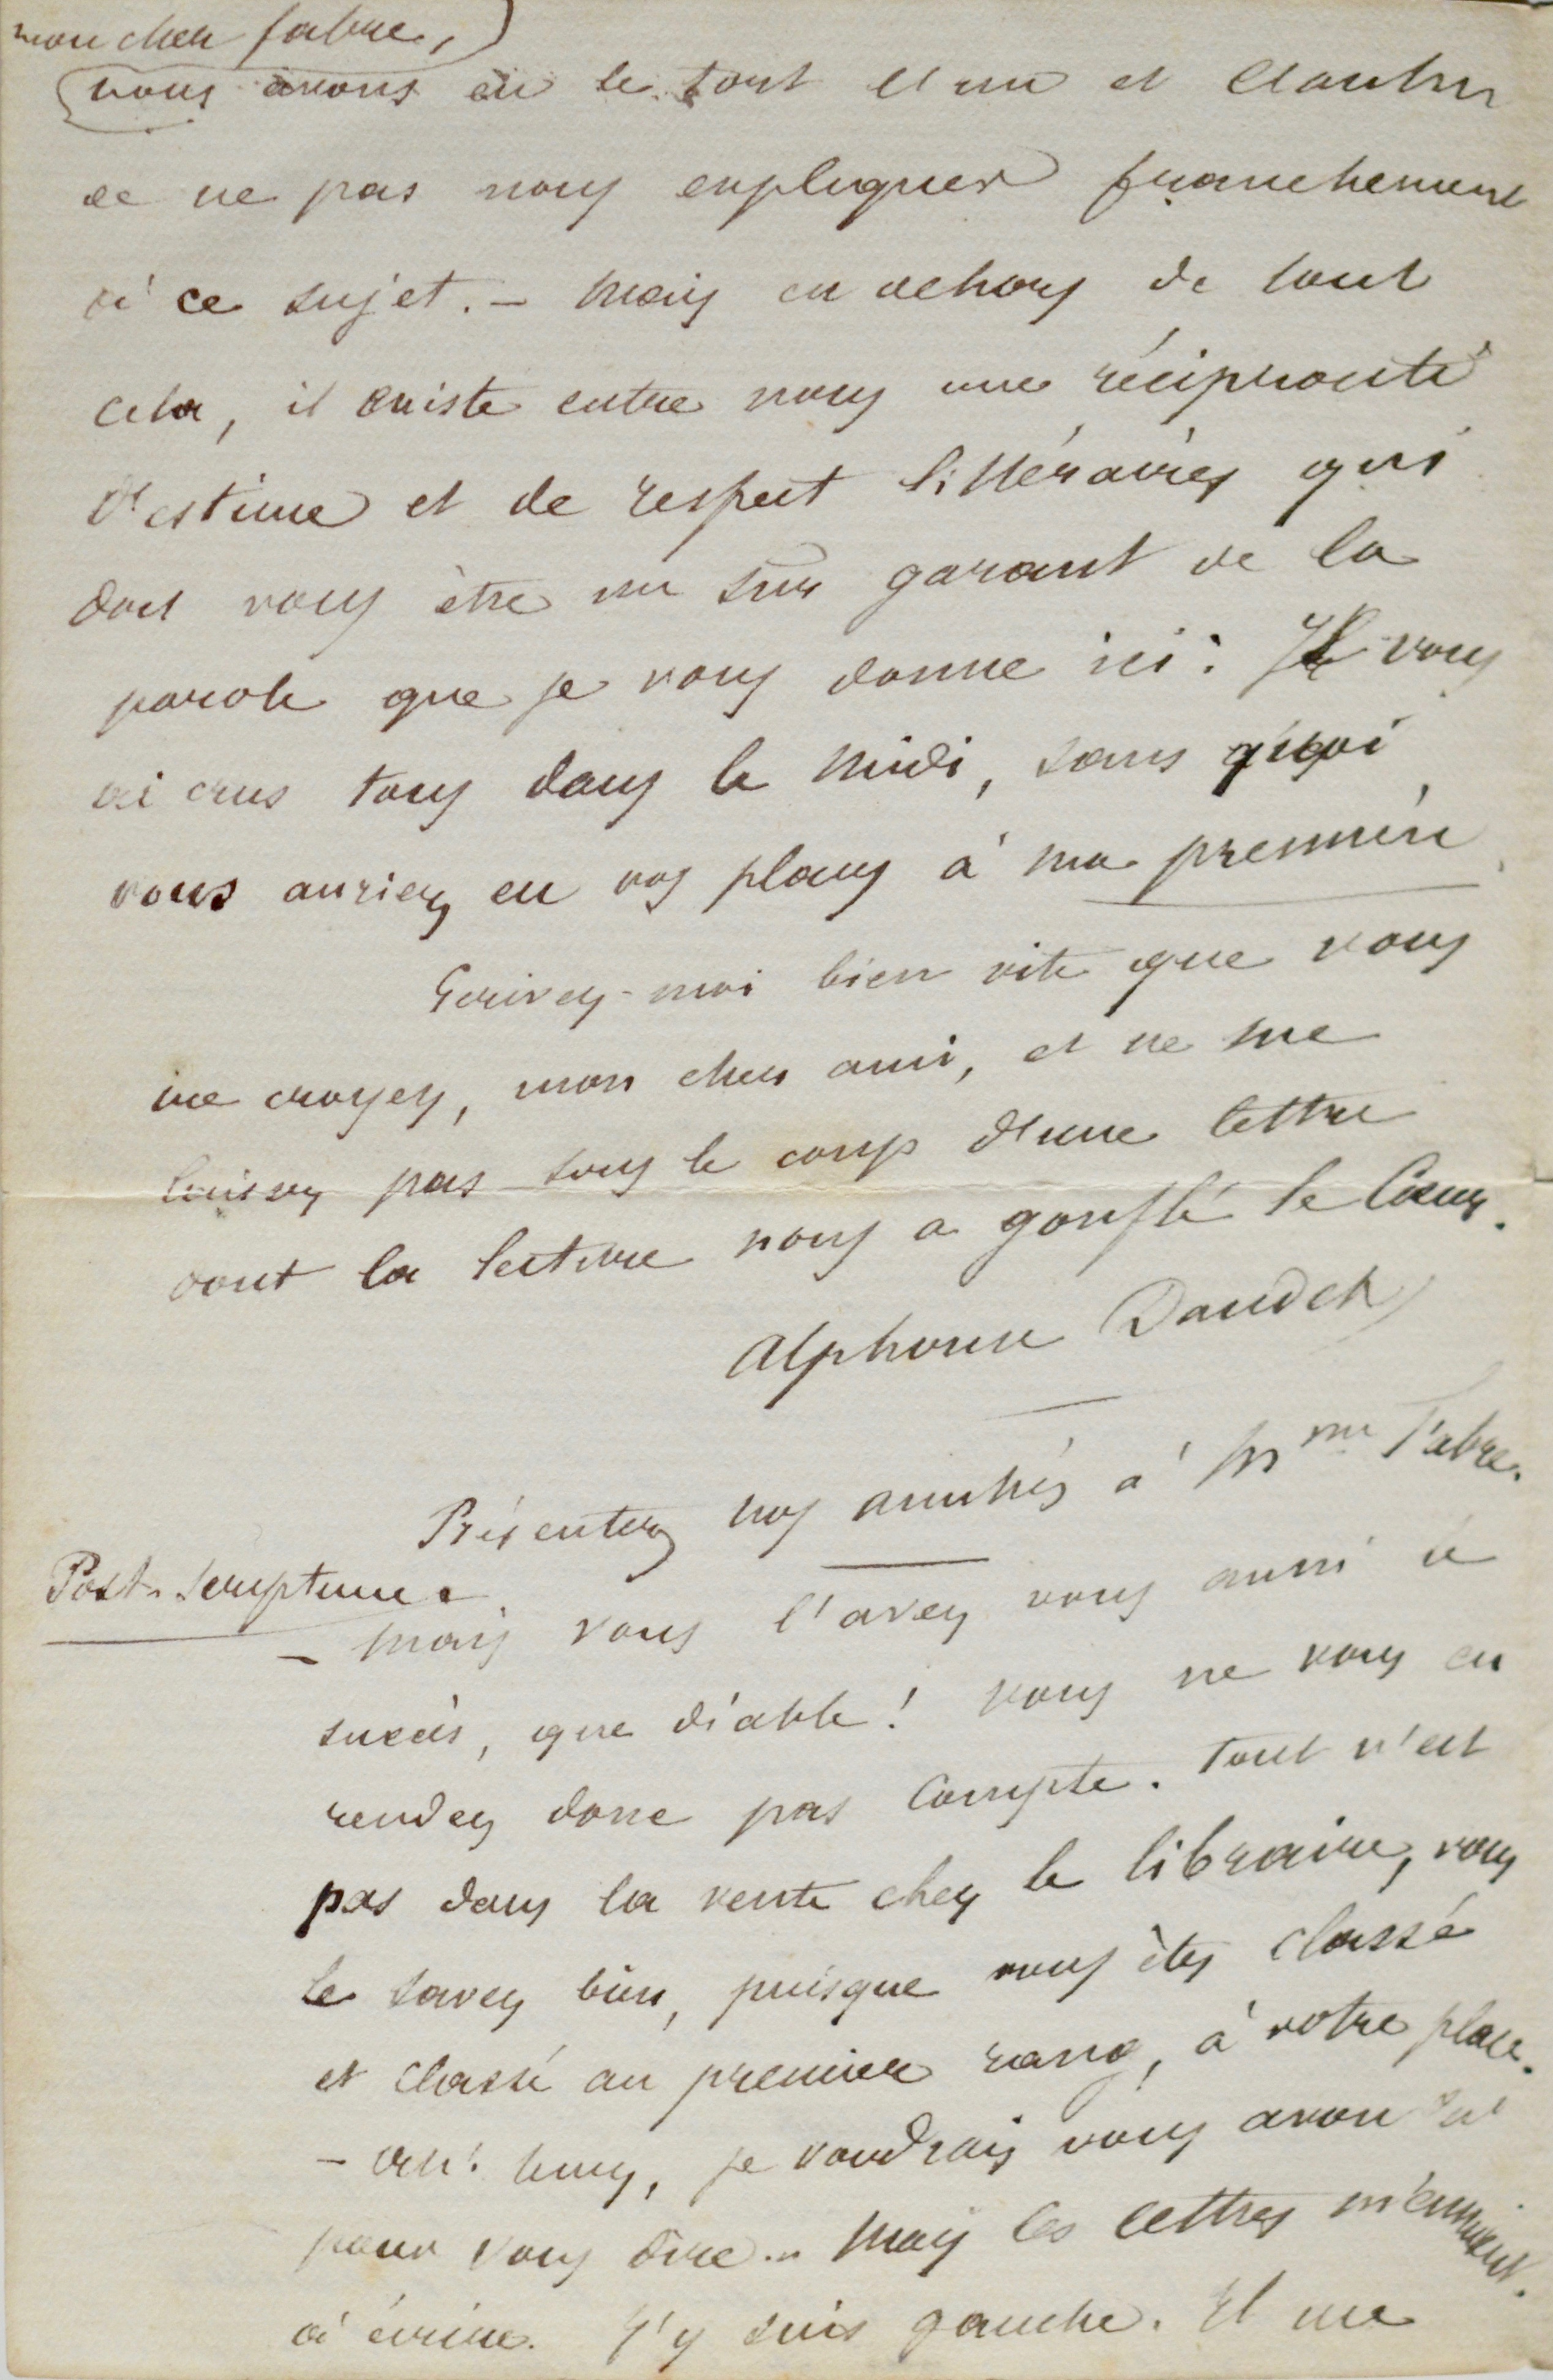 mon cher fabre,
nous avons eu le tort l'un et l'autre
de ne pas nous expliquer franchement
à ce sujet. – Mais en dehors de tout
cela, il existe entre nous une réciprocité
d'estime et de respect littéraires qui
doit vous être un sûr garant de la
parole que je vous donne ici : Je vous
ai crus tous dans le Midi, sans quoi
vous auriez eu vos places à ma première
Ecrivez-moi bien vite que vous
me croyez, mon cher ami, et ne me
laissez pas sous le coup d'une lettre
dont la lecture nous a gonflé le Cœur.
Alphonse Daudet
Présentez nos amitiés à Mme Fabre.
Post-Scriptum.
– Mais vous l'avez vous aussi le
succès, que diable ! Vous ne vous en
rendez donc pas Compte. Tout n'est
pas dans la vente chez le libraire, vous
le savez bien, puisque vous êtes classé
et classé au premier rang, à votre place.
– Ah! tenez, je voudrais vous avoir là
pour vous dire... Mais les lettres m'ennuient
à écrire. J'y suis gauche. Il me